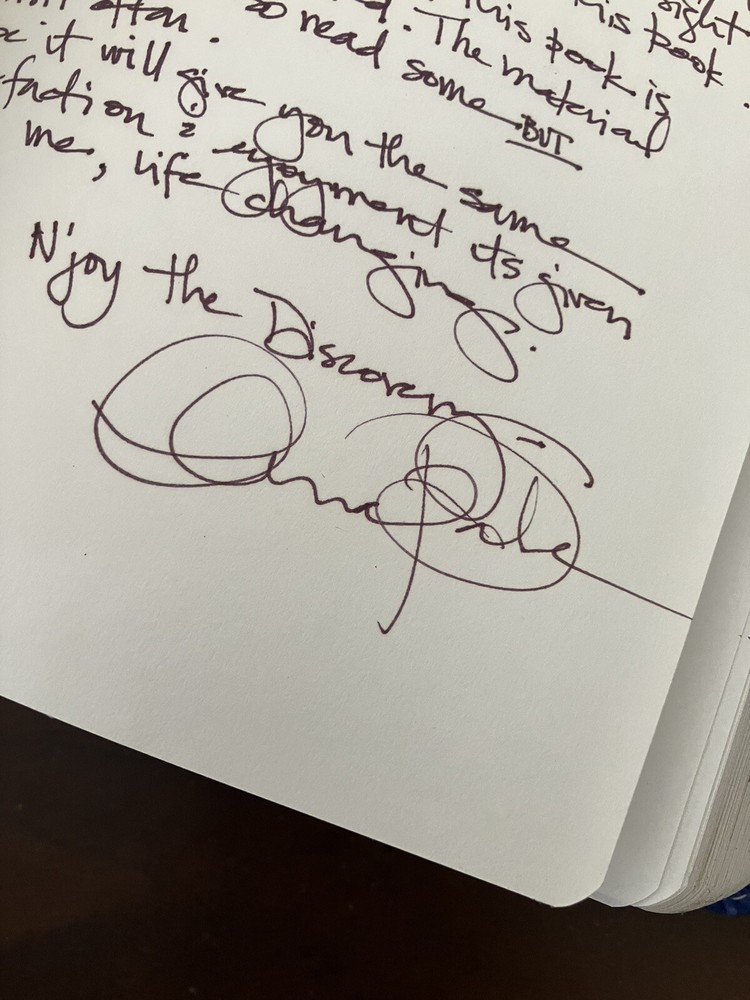 sight
this book is this book.
so read some The material
BUT
it will give you the same
faction & enjoyment its given
me, life changing.
N'joy the Discovery